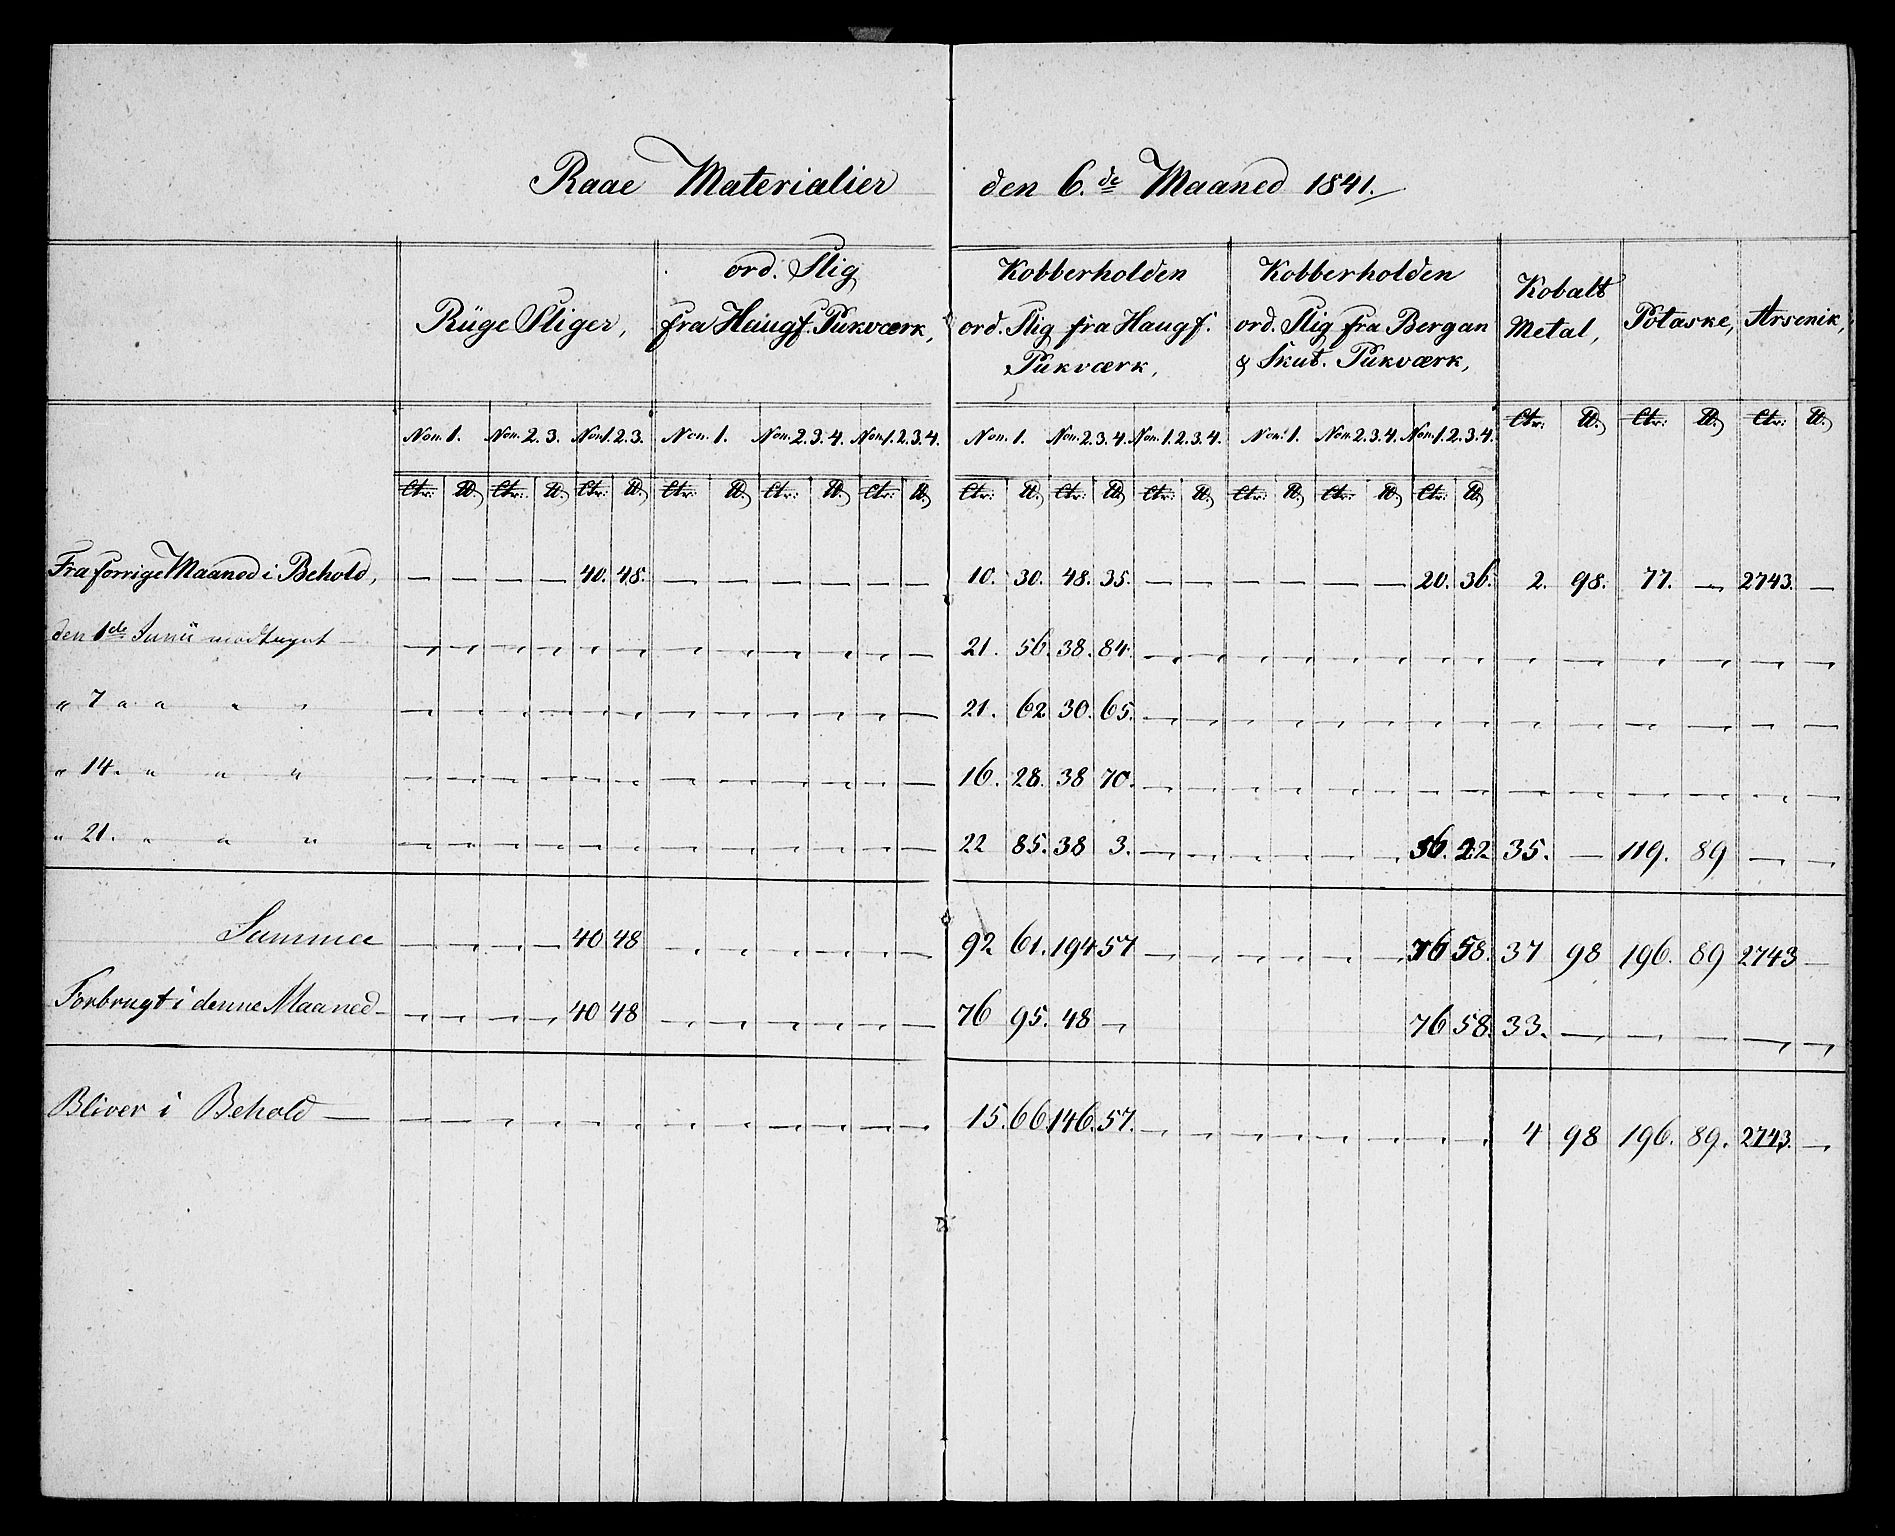 Raae Materialier den 6.de Maaned 1841.
Rüge Sliger,
ord. Slig
fra Haugf. Pukværk,
Kobberholden
ord. Slig fra Haugf.
Pukværk,
Kobberholden
ord. Slig fra Bergan
& Skut. Pukværk,
Kobalt
Metal,
Potaske,
Arsenik,
Non. 1. Non. 2. 3. Non 1. 2. 3. Non. 1. Non. 2. 3. 4. Non 1. 2. 3. 4. Non. 1. Non. 2. 3. 4. Non. 1. 2. 3. 4. Non. 1. Non. 2. 3. 4. Non. 1. 2. 3. 4.
Ctr. ℔. Ctr. ℔. Ctr. ℔.
Ctr. ℔. Ctr. ℔. Ctr. ℔. Ctr. ℔. Ctr. ℔. Ctr. ℔. Ctr. ℔. Ctr. ℔. Ctr. ℔. Ctr. ℔. Ctr. ℔. Ctr. ℔.
Fra forrige Maaned i Behold, — — — — 40. 48. — — — — — — 10. 30. 48. 35. — — — — — — 20. 36. 2. 98. 77. — 2743. —
den 1de Junii modtaget — — — — — — — — — — — — — 21. 56. 38. 84. — — — — — — — — — — — — — —
" 7 " " " " — — — — — — — — — — — — 21. 62 30. 65. — — — — — — — — — — — — — —
" 14. " " " — — — — — — — — — — — — 16. 28. 38 70. — — — — — — — — — — — — — —
" 21. " " " — — — — — — — — — — — — 22 85. 38 3. — — — — — — 56. 22 35. — 119. 89 — —
Summa — — — — 40 48 — — — — — — 92 61. 194 57 — — — — — — 76 58. 37 98 196. 89 2743 —
Forbrugt i denne Maaned — — — — — 40 48 — — — — — — 76 95. 48 — 76 58. 33. — — — — —
Bliver i Behold — — — — — — — — — — — — — 15. 66. 146. 57. — — — — — — — — 4 98 196. 89. 2743. —